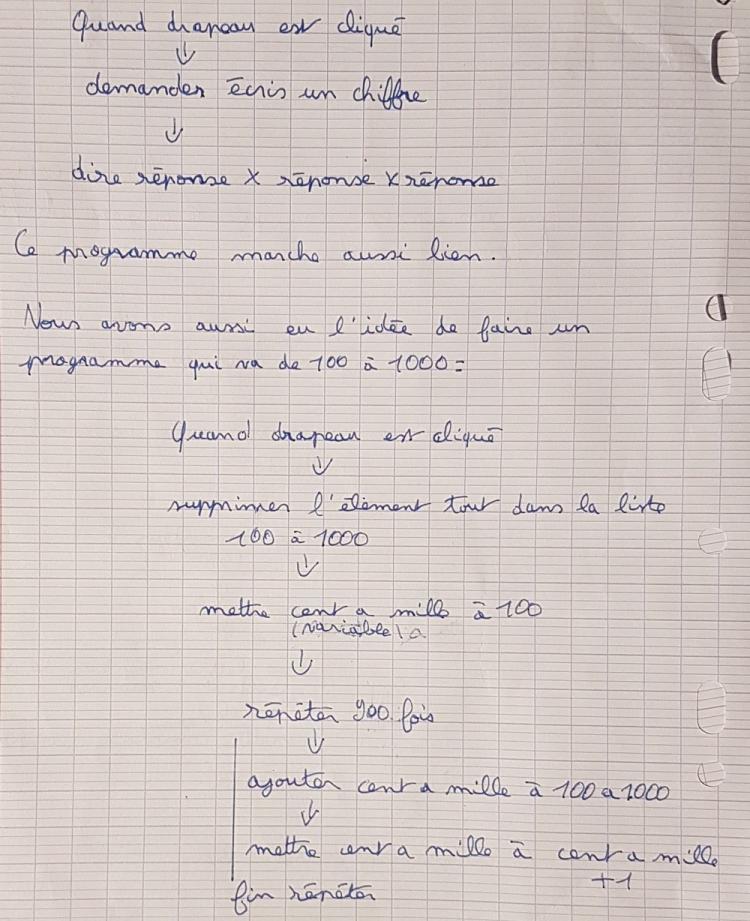 Quand drapeau est cliqué
↓
demander écris un chiffre
↓
dire réponse X réponse X réponse
Ce programme marche aussi bien.
Nous avons aussi eu l'idée de faire un
programme qui va de 100 à 1000 =
Quand drapeau est cliqué
↓
supprimer l'élément tout dans la liste
100 à 1000
↓
mettre cent a mille à 100
(variable) a
↓
répéter 900 fois
↓
ajouter cent a mille à 100 a 1000
↓
mettre cent a mille à cent a mille
+1
fin répéter